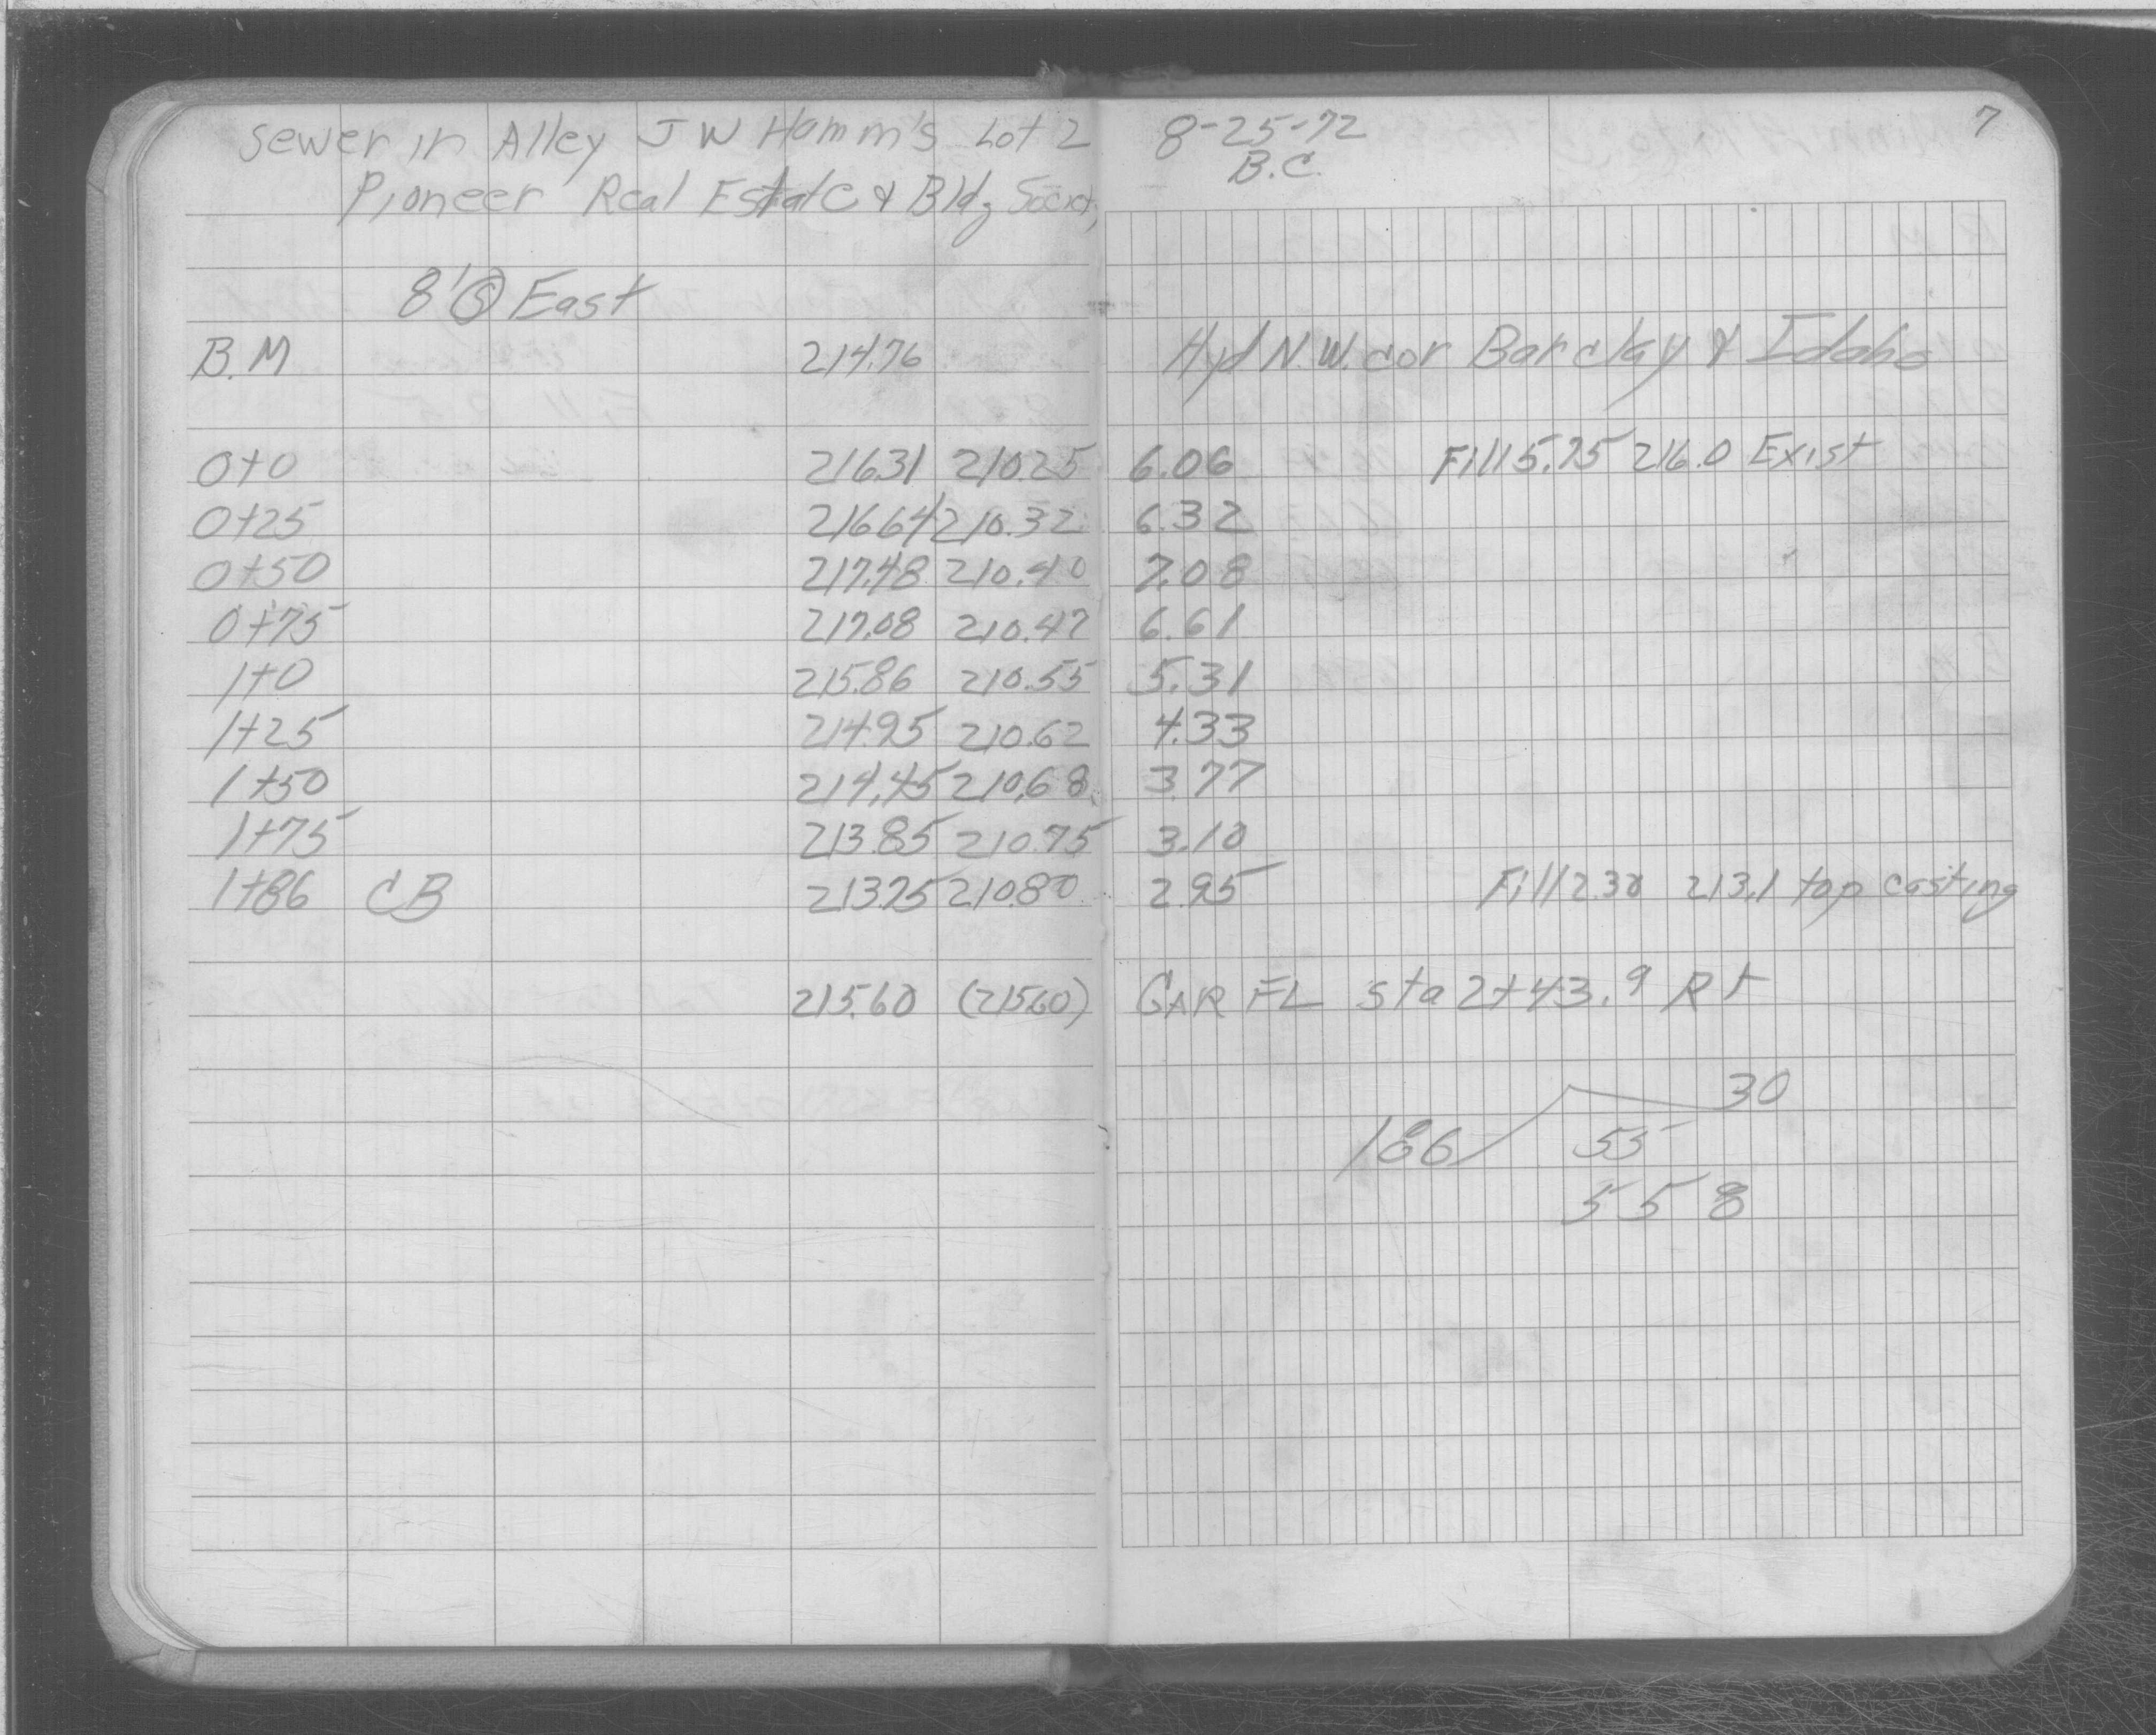 Sewer in Alley J W Hamm's Lot 2
Pioneer Real Estate & Bldg Society
8' @ East
B.M 214.76
0+0 216.31 210.25
0+25 216.64 210.32
0+50 217.48 210.40
0+75 217.08 210.47
1+0 215.86 210.55
1+25 214.95 210.62
1+50 214.45 210.68
1+75 213.85 210.75
1+86 CB 213.75 210.80
215.60 (215.60)
7
8-25-72
B.C.
Hyd N.W. cor Barclay & Idaho
6.06 Fill 5.75 216.0 Exist
6.32
7.08
6.61
5.31
4.33
3.77
3.10
2.95 Fill 2.30 213.1 top casting
GAR FL sta 2+43.9 Rt
30
186 55
558